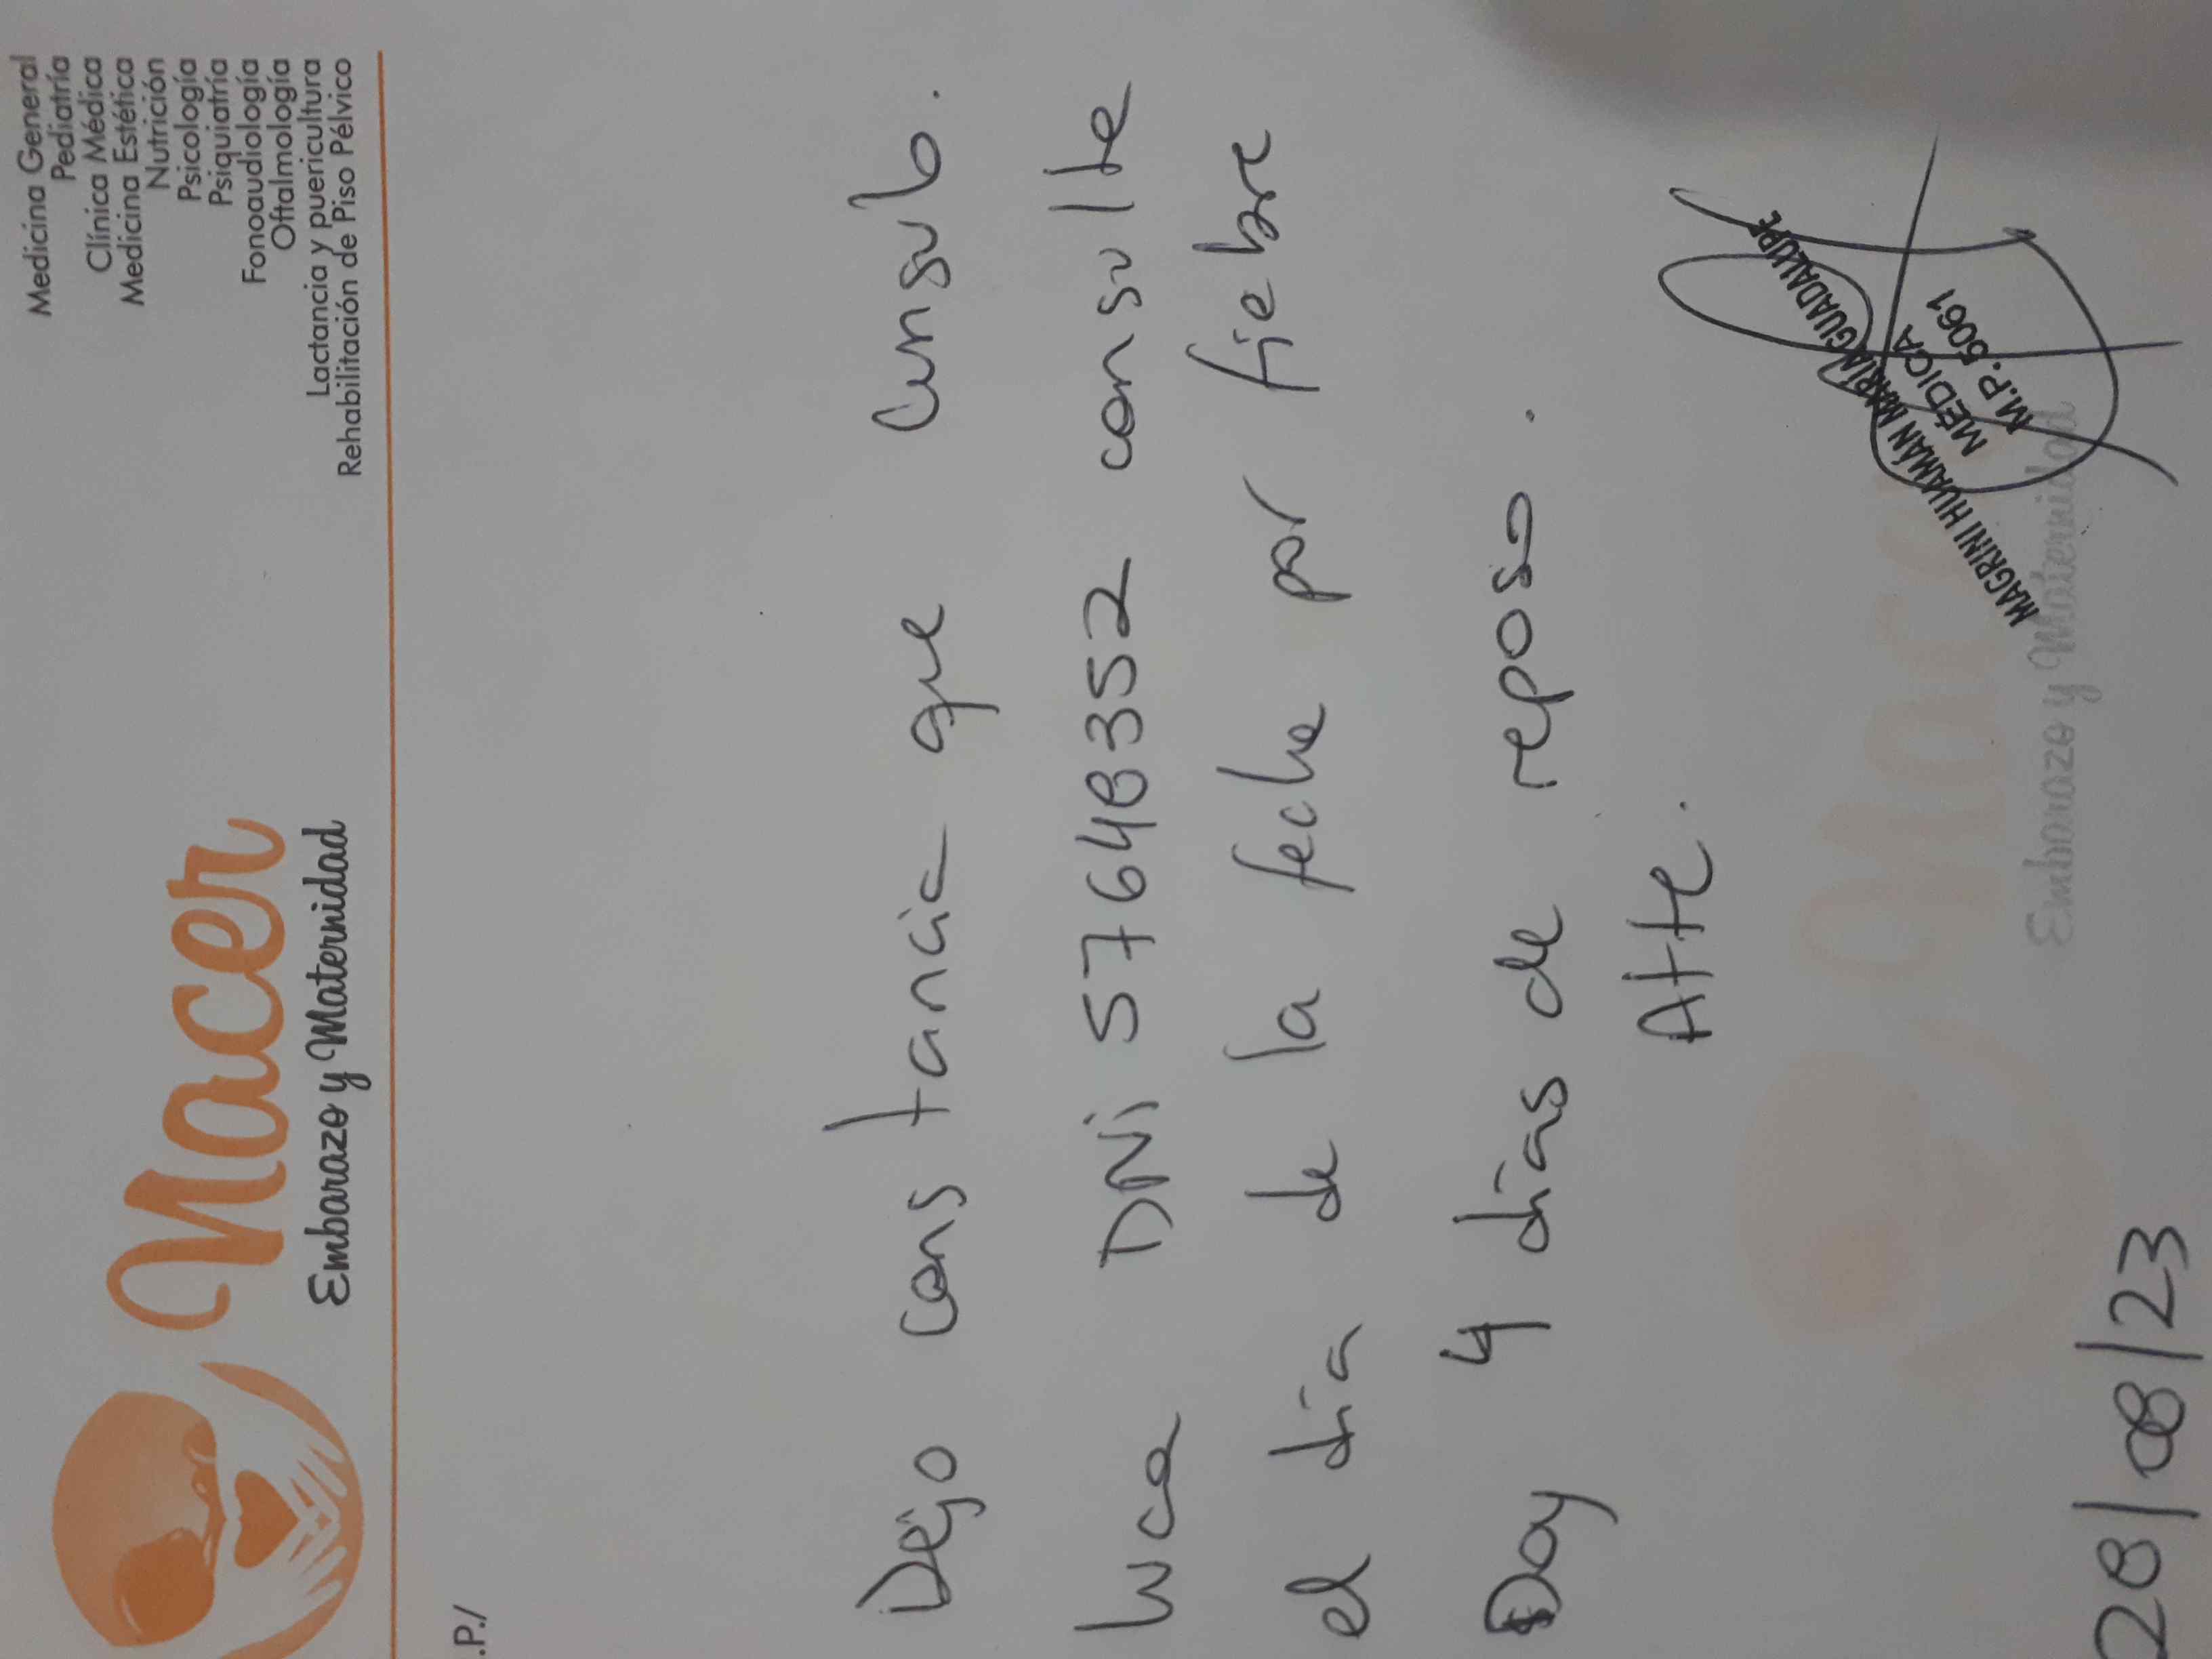 Macer
Embarazo y Maternidad
Medicina General
Pediatría
Clínica Médica
Medicina Estética
Nutrición
Psicología
Psiquiatría
Fonoaudiología
Oftalmología
Lactancia y puericultura
Rehabilitación de Piso Pélvico
.P./
Dejo constancia que
Luca DNi 57648352 consulte
el día de la fecha por fiebre
Doy 4 dias de reposo.
Atte.
MAGRINI HUAMÁN MARÍA GUADALUPE
MÉDICA
M.P. 5061
Embarazo y Maternidad
28/08/23